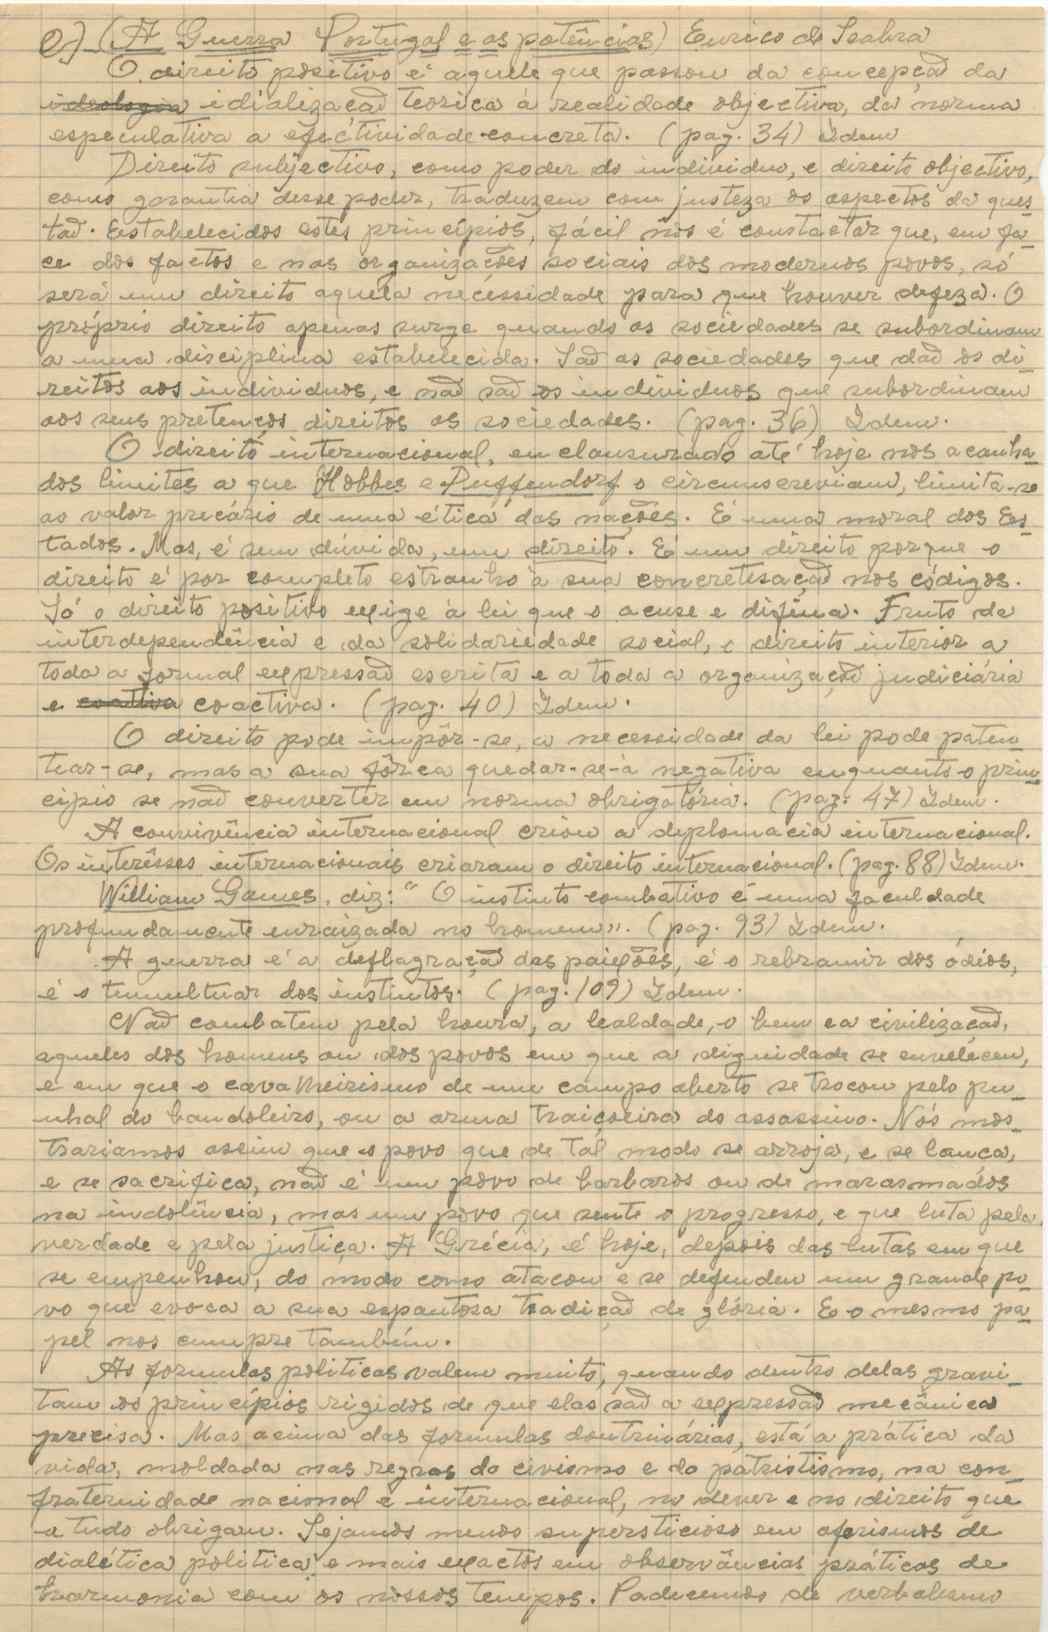 e) (A Guerra Portugal e as potências) Eurico de Seabra
O direito positivo é aquele que passou da concepção da
ideologia idialização teorica á realidade objectiva, da norma
especulativa a efectividade concreta. (pag. 34) Idem
Direito subjectivo, como poder do individuo, e direito objectivo,
como garantia desse poder, traduzem com justeza os aspectos da ques-
tão. Estabelecidos estes princípios, fácil nos é constactar que, em fa-
ce dos factos e nas organizações sociais dos modernos povos, só
será um direito aquela necessidade para que houver defeza. O
próprio direito apenas surge quando as sociedades se subordinam
a uma disciplina estabelecida. São as sociedades que dão os di-
reitos aos individuos, e não são os individuos que subordinam
aos seus pretenços direitos as sociedades. (pag. 36) Idem.
O direito internacional, enclausurado até hoje nos acanha-
dos limites a que Hobbes e Puffendorf o circunscreviam, limita-se
ao valor precário de uma ética das nações. É uma moral dos Es-
tados. Mas, é sem dúvida, um direito. É um direito porque o
direito é por completo estranho à sua concretisação nos códigos.
Só o direito positivo exige à lei que o acuse e difina. Fruto da
interdependência e da solidariedade social, o direito interior a
toda a formal expressão escrita e a toda a organização judiciária
e coativa coactiva. (pag. 40) Idem.
O direito pode impôr-se, a necessidade da lei pode paten-
tear-se, mas a sua fôrça quedar-se-à negativa enquanto o prin-
cipio se não converter em norma obrigatória. (pag. 47) Idem.
A convivência internacional criou a diplomacia internacional.
Os interêsses internacionais criaram o direito internacional. (pag. 88) Idem.
William Games, diz: "O instinto combativo é uma faculdade
profundamente enraizada no homem". (pag. 93) Idem.
A guerra é a deflagração das paixões, é o rebramir dos ódios,
é o tumultuar dos instintos. (pag. 109) Idem.
Não combatem pela honra, a lealdade, o bem e a civilização,
aqueles dos homens ou dos povos em que a dignidade se envelecem,
e em que o cavalheirismo de um campo aberto se trocou pelo pu-
nhal do bandoleiro, ou a arma traiçoeira do assassino. Nós mos-
trariamos assim que o povo que de tal modo se arroja, e se lança,
e se sacrifica, não é um povo de barbaros ou de marasmados
na indolência, mas um povo que sente o progresso, e que luta pela
verdade e pela justiça. A Grécia, é hoje, depois das lutas em que
se empenhou, do modo como atacou e se defendeu um grande po-
vo que evoca a sua espantosa tradição de glória. E o mesmo pa-
pel nos cumpre também.
As formulas politicas valem muito, quando dentro delas gravi-
tam os princípios rigidos de que elas são a expressão mecânica
precisa. Mas acima das formulas doutrinárias, está a prática da
vida, moldada nas regras do civismo e do patriotismo, na con-
fraternidade nacional e internacional, no dever e no direito que
a tudo obrigam. Sejamos menos supersticioso em aforismos de
dialética politica e mais exactos em observâncias práticas de
harmonia com os nossos tempos. Padecemos de verbalismo